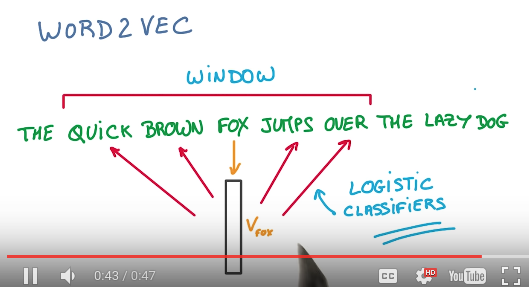 WORD2VEC
WINDOW
THE QUICK BROWN FOX JUMPS OVER THE LAZY DOG
LOGISTIC
CLASSIFIERS
VFOX
0:43 / 0:47
CC
HD
YouTube